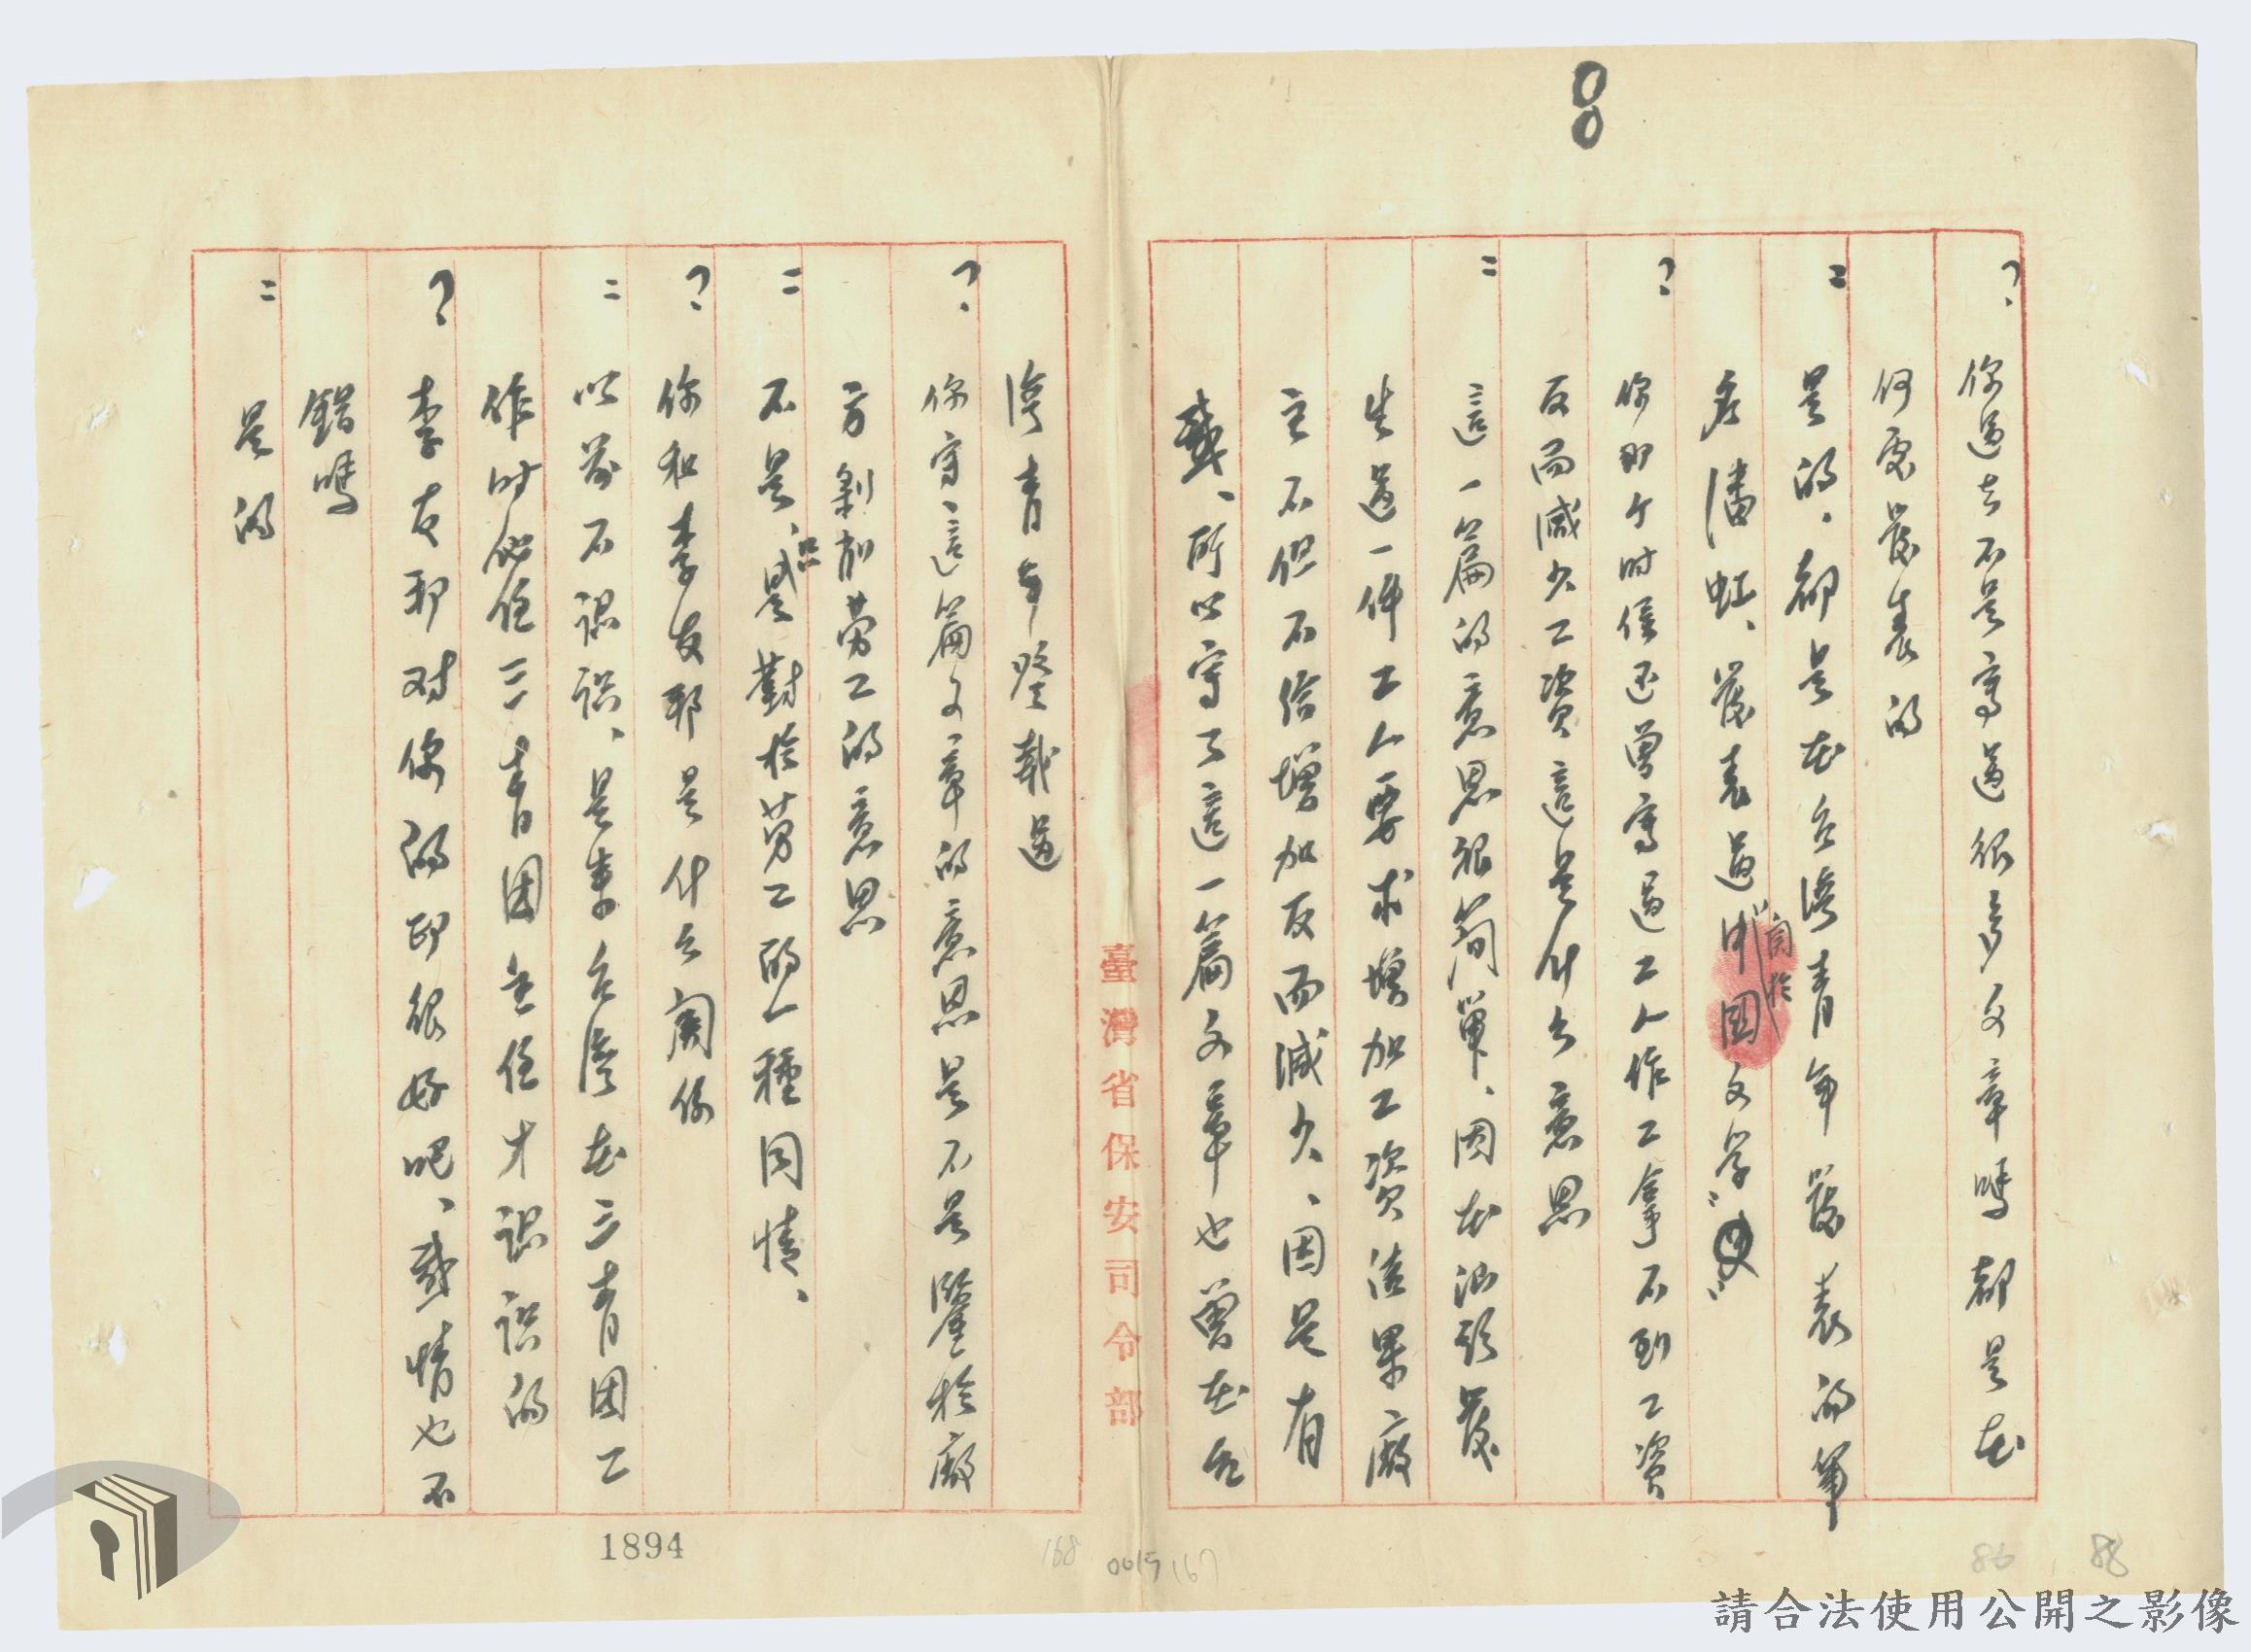 8
？ 你過去不是寫過很多文章嗎都是在
何處發表的
： 是的、都是在台灣青年發表的筆
名潘虹、發表過"関於中國文学"
？ 你那个时候还曾寫过工人作工拿不到工資
反而減少工資這是什么意思
： 這一篇的意思很简單、因在汕頭發
生過一件工人要求增加工資結果廠
主不但不給增加反而減少、因是有
感、所以寫了這一篇文章也曾在台
灣青年登載過
？ 你寫這篇文章的意思是不是鑒於廠
方剝削勞工的意思
： 不是、只是對於勞工的一種同情、
？ 你和李友邦是什么関係
： 以前不認識、是來台灣在三青团工
作时他任三青团主任才認識的
？ 李友邦对你的印很好吧、感情也不
錯嗎
： 是的
臺灣省保安司令部
1894
168
0015
167
86
88
請合法使用公開之影像